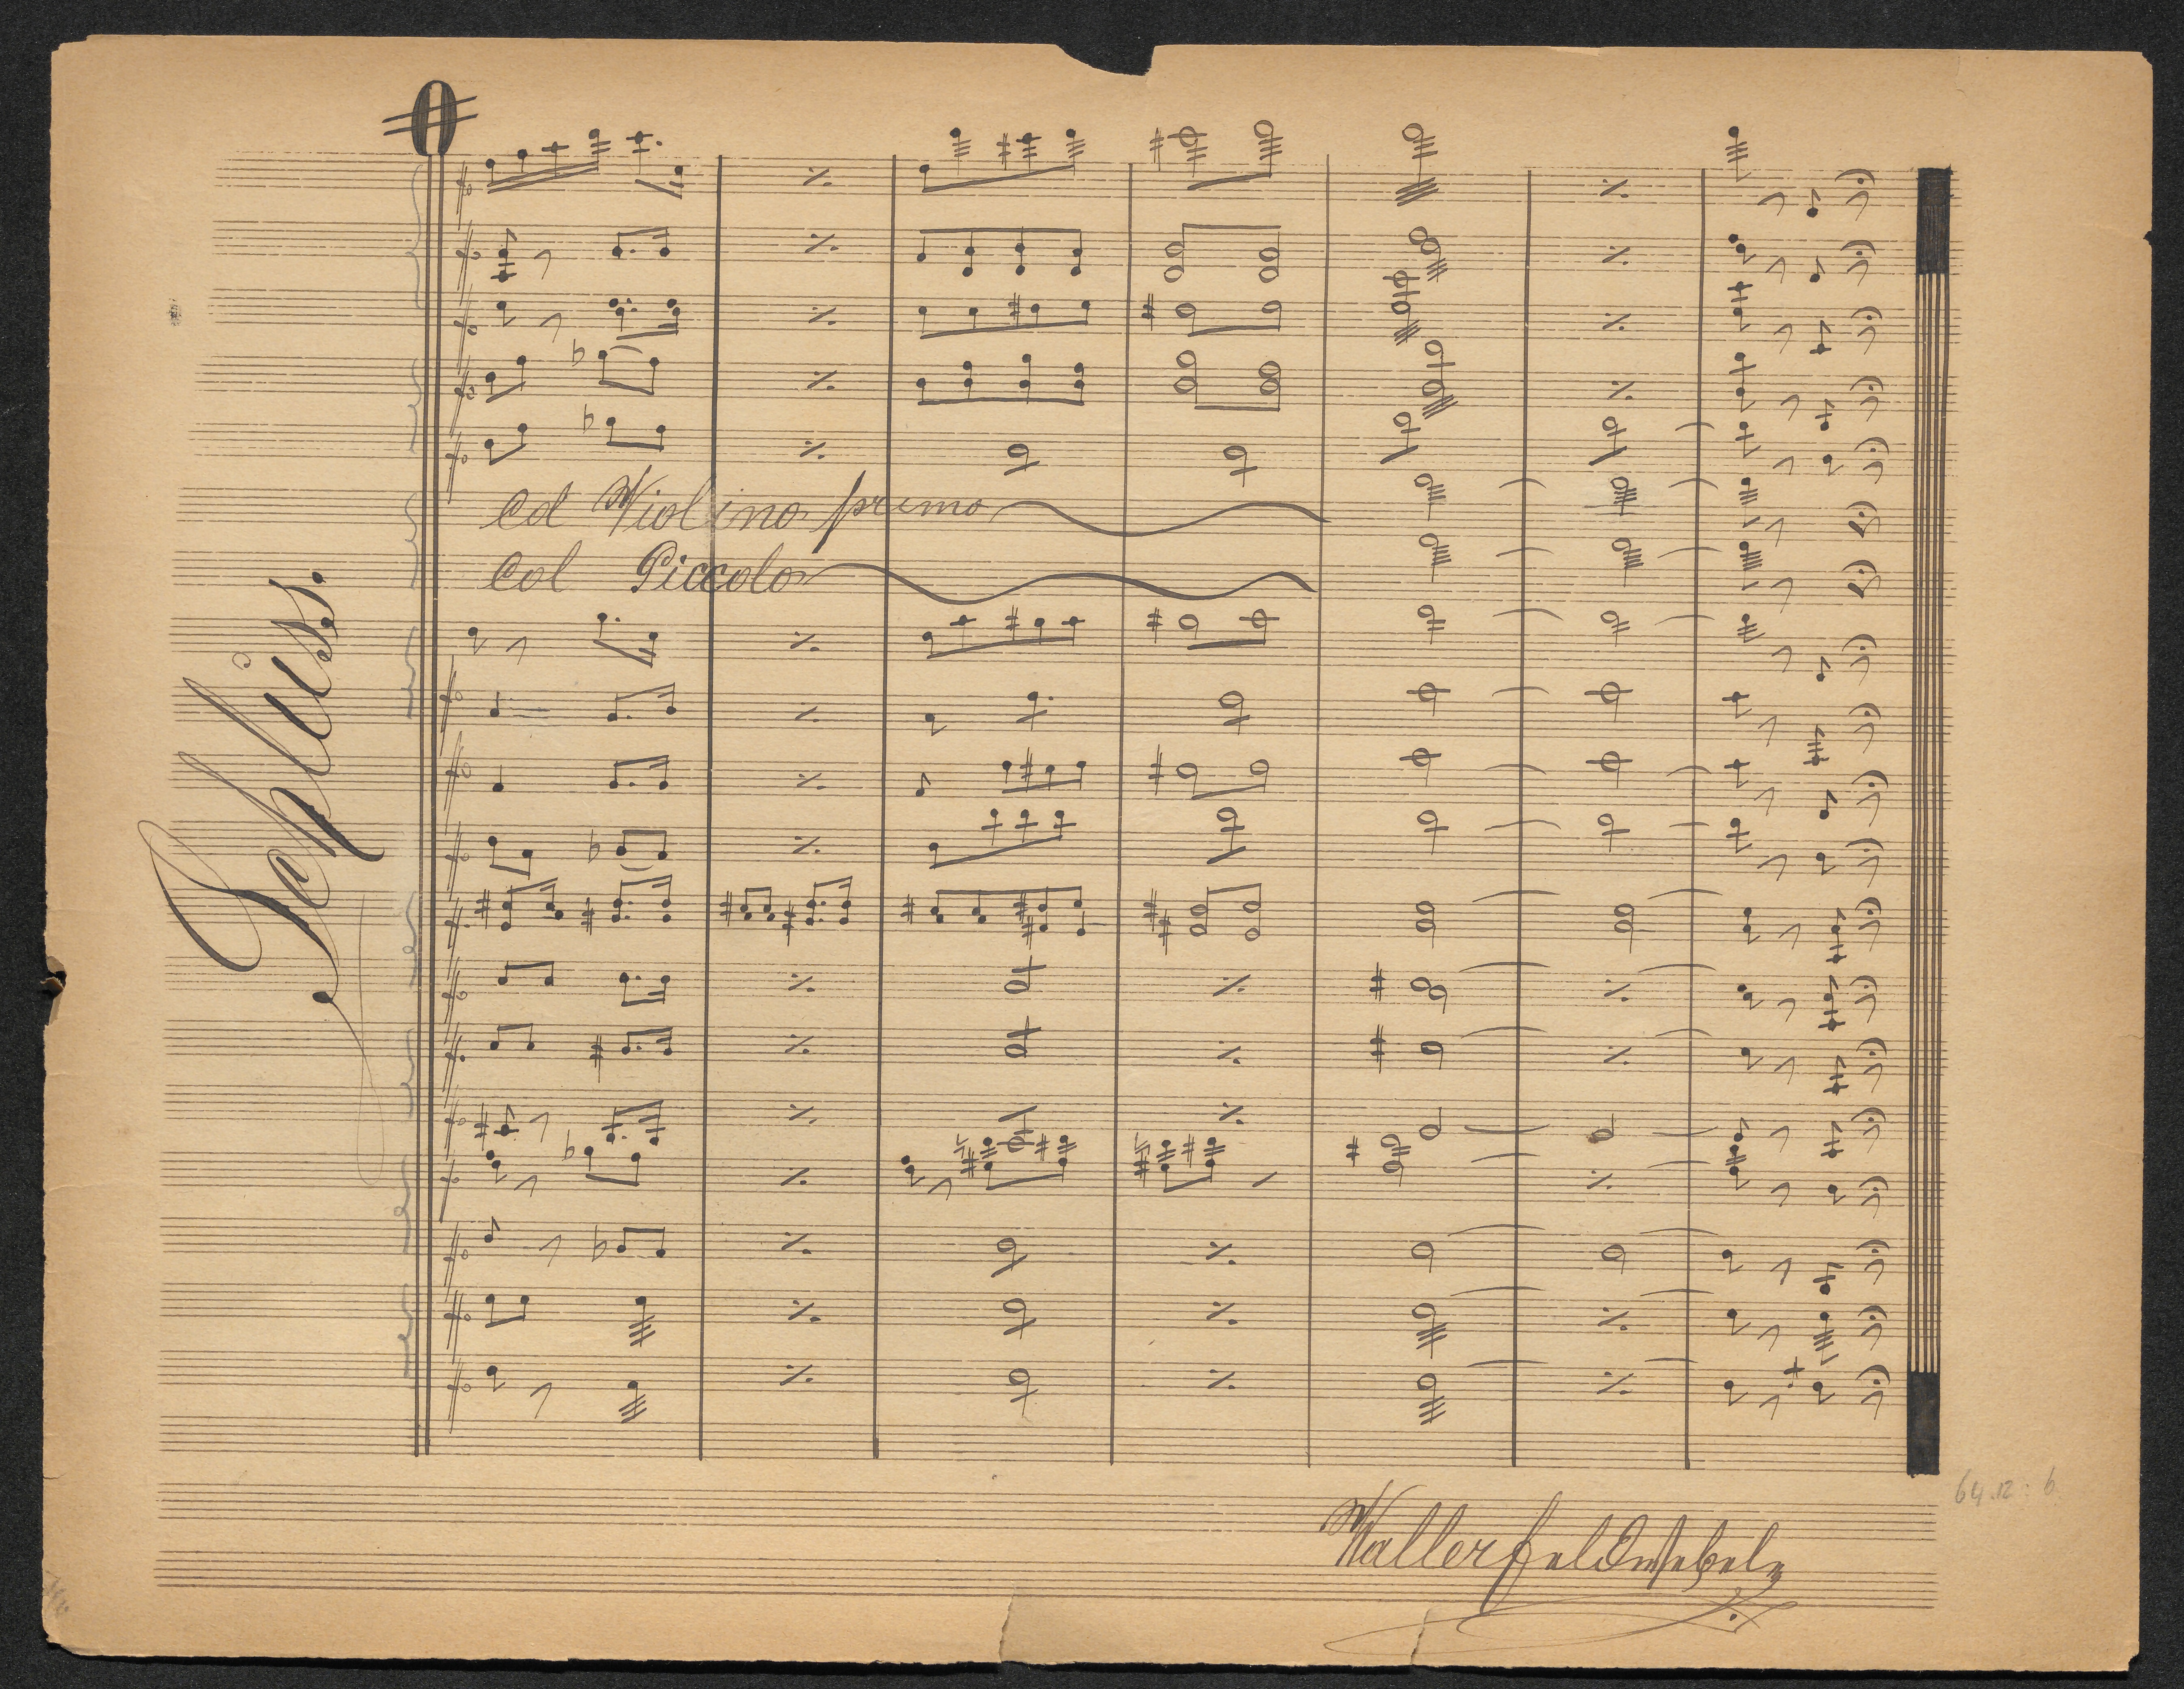 Schluss.
Col Violino primo
Col Piccolo
Waller Feldwebel
64.12:6